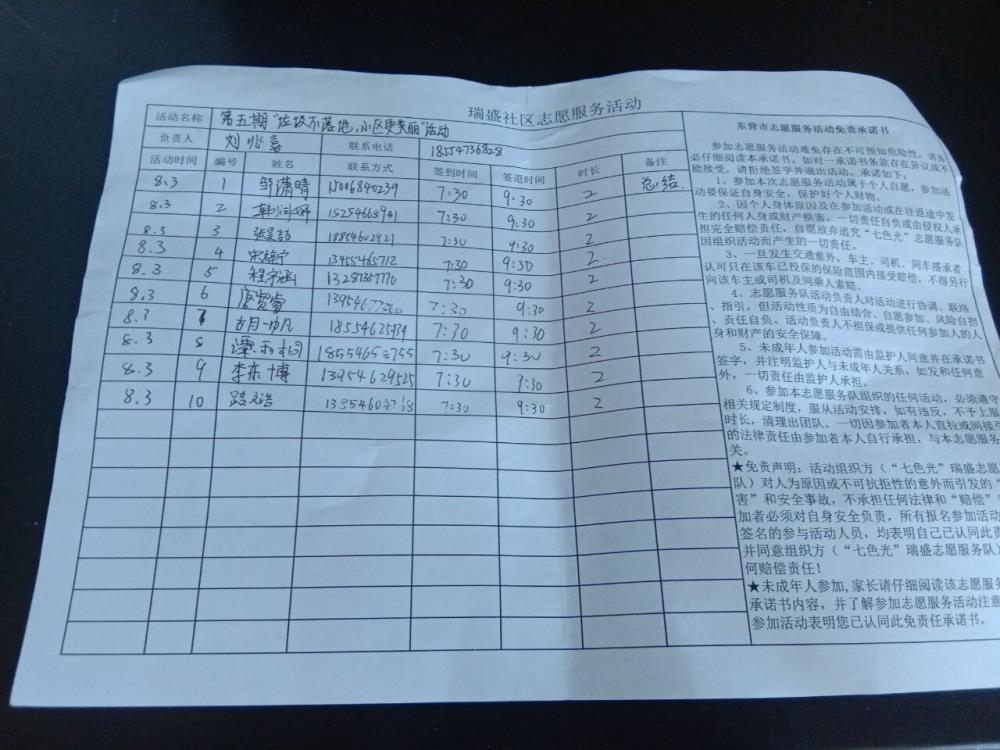 瑞盛社区志愿服务活动
活动名称 第五期"垃圾不落地,小区更美丽"活动
负责人 刘兆嘉 联系电话 18554736828
活动时间 编号 姓名 联系方式 签到时间 签退时间 时长 备注
8.3 1 邹潇晴 15006840239 7:30 9:30 2 总结
8.3 2 15254668931 7:30 9:30 2
8.3 3 18854602921 7:30 9:30 2
8.3 4 13455465712 7:30 9:30 2
8.3 5 程宇涵 7:30 9:30 2
8.3 6 7:30 9:30 2
8.3 7 胡一凡 7:30 9:30 2
8.3 8 7:30 9:30 2
8.3 9 李东博 13954629525 7:30 9:30 2
8.3 10 路文浩 7:30 9:30 2
东营市志愿服务活动免责承诺书
参加志愿服务活动难免存在不可预知危险性,请务
必仔细阅读本承诺书。如对一承诺书条款存在异议或不
能接受,请拒绝签字并退出活动。承诺如下:
1、参加本次志愿服务活动属于个人自愿,参加活
动要保证自身安全,保护好个人财物。
2、因个人身体原因及在参加活动或在往返途中发
生的任何人身或财产损害,一切责任自负或由侵权人承
担完全赔偿责任,自愿放弃追究"七色光"志愿服务队
因组织活动而产生的一切责任。
3、一旦发生交通意外,车主、司机、同车搭乘者
认可只在该车已投保的保险范围内接受赔偿,不得另行
向该车主或司机及同乘人索赔。
4、志愿服务队活动负责人对活动进行协调、联络
、指引,但活动性质为自由结合、自愿参加、风险自担
、责任自负。活动负责人不担保或提供任何参加人的人
身和财产的安全保障。
5、未成年人参加活动需由监护人同意并在承诺书
签字,并注明监护人与未成年人关系,如发和任何意
外,一切责任由监护人承担。
6、参加本志愿服务队组织的任何活动,必须遵守
相关规定制度,服从活动安排,如有违反,不予上服
时长,清理出团队。一切因参加着本人直拉或间接引
的法律责任由参加着本人自行承担,与本志愿服务
关。
★免责声明:活动组织方("七色光"瑞盛志愿服
队)对人为原因或不可抗拒性的意外而引发的"
害"和安全事故,不承担任何法律和"赔偿"
加者必须对自身安全负责,所有报名参加活动
签名的参与活动人员,均表明自己已认同此责
并同意组织方("七色光"瑞盛志愿服务队)
何赔偿责任!
★未成年人参加,家长请仔细阅读该志愿服务
承诺书内容,并了解参加志愿服务活动注意
参加活动表明您已认同此免责任承诺书。